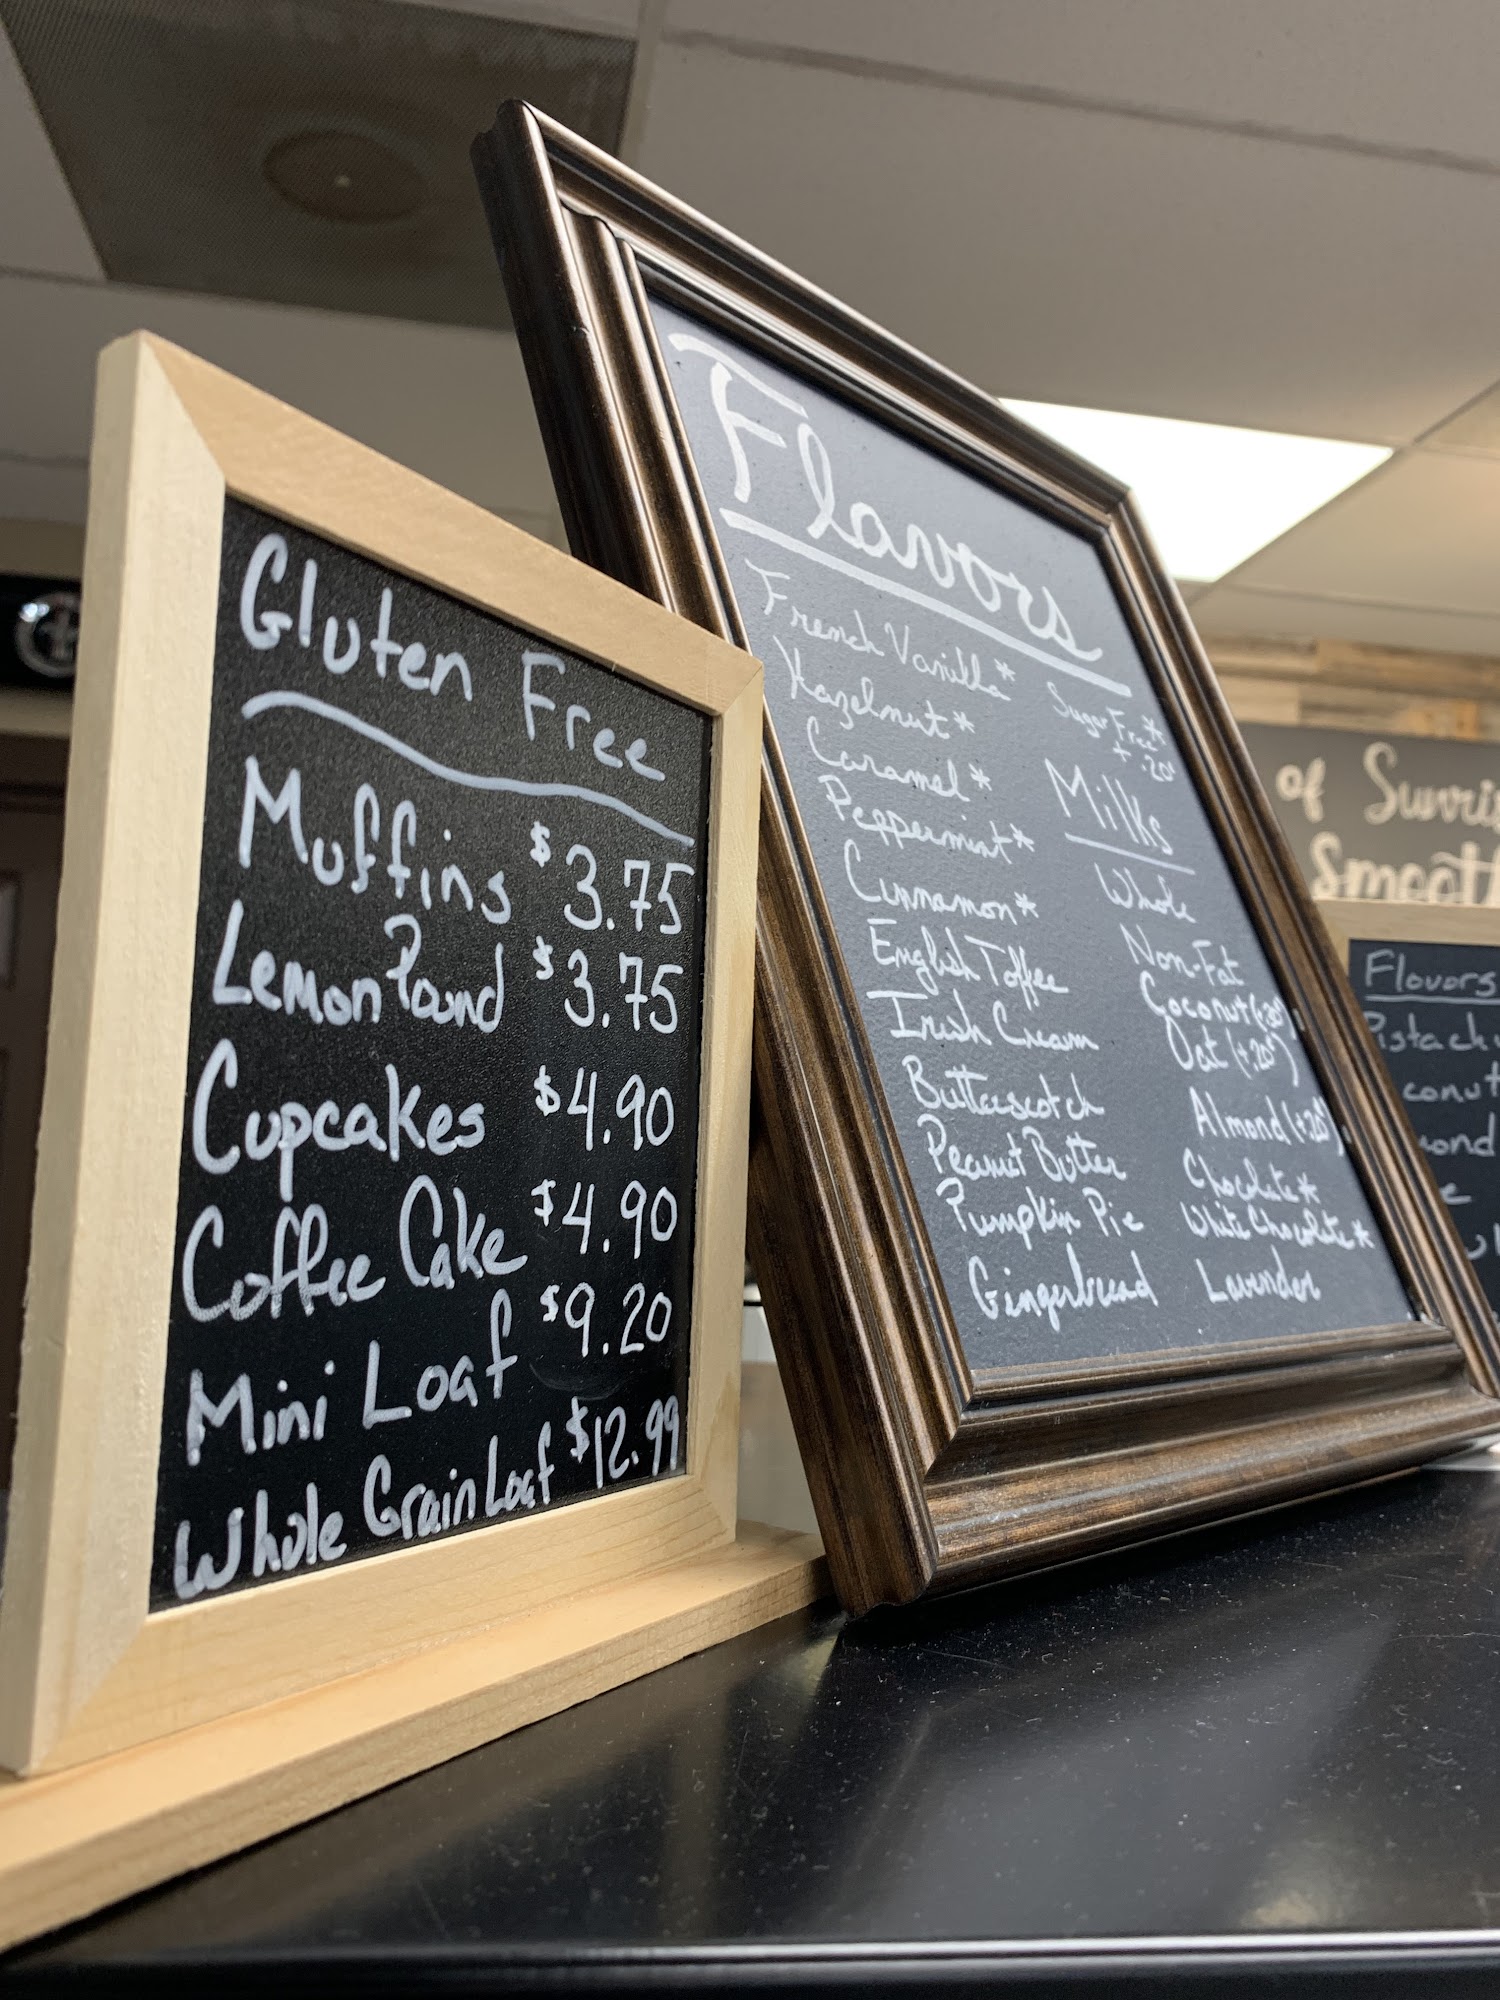 Gluten Free
Muffins $3.75
Lemon Pound $3.75
Cupcakes $4.90
Coffee Cake $4.90
Mini Loaf $9.20
Whole Grain Loaf $12.99
Flavors
French Vanilla*
Hazelnut*
Caramel*
Peppermint*
Cinnamon*
English Toffee
Irish Cream
Butterscotch
Peanut Butter
Pumpkin Pie
Gingerbread
Sugar Free*
+ .20¢
Milks
Whole
Non-Fat
Coconut (+.20¢)
Oat (+.20¢)
Almond (+.20¢)
Chocolate*
White Chocolate*
Lavender
of Sunris
Smooth
Flavors
Pistach
conut
mond